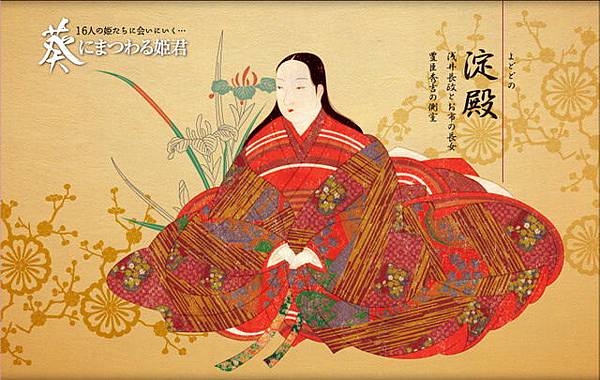 16人の姫たちに会いにいく…
葵にまつわる姫君
よどどの
淀殿
浅井長政とお市の長女
豊臣秀吉の側室